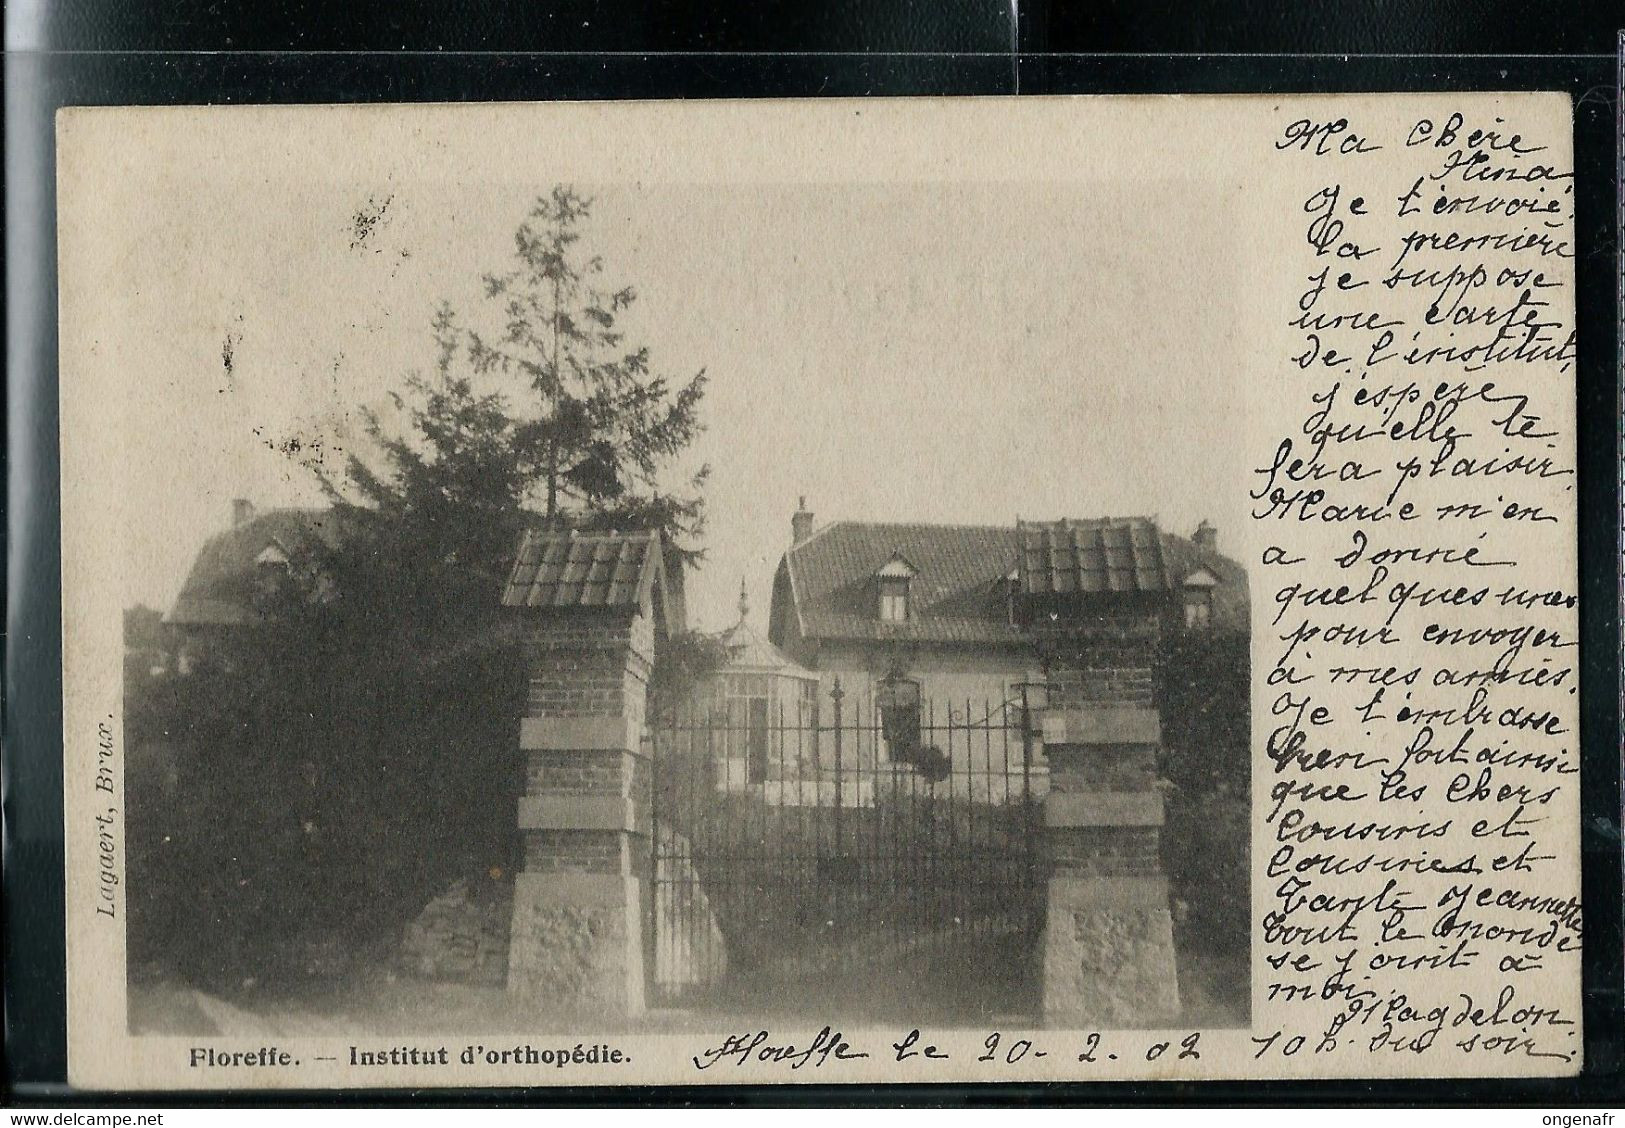 Ma Chère
Nina,
Je t'envoie
la première
je suppose
une carte
de l'institut,
j'espère
qu'elle te
fera plaisir.
Marie m'en
a donné
quelques unes
pour envoyer
à mes amies.
Je t'embrasse
bien fort ainsi
que les Chers
Cousins et
Cousines et
Tante Jeannette
Tout le monde
se joint à
moi.
Magdelon.
Floreffe le 20-2-02 10 h. du soir.
Lagaert, Brux.
Floreffe. — Institut d'orthopédie.
www.delcampe.net
ongenafr